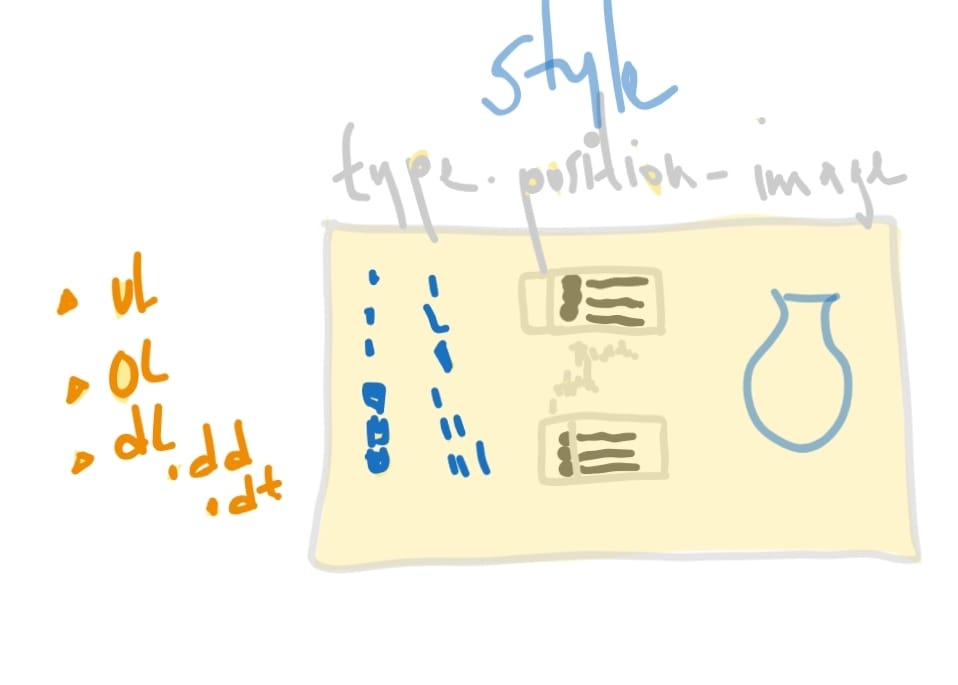 style
type. position - image
ul
OL
dL
.dd
.dt